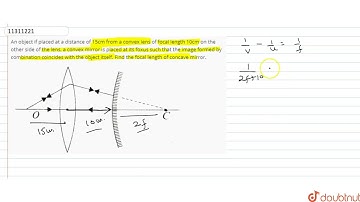 11311221
An object if placed at a distance of 15cm from a convex lens of focal length 10cm on the
other side of the lens. a convex mirror is placed at its foxus such that the image formed by
combination coincides with the object itself. Find the focal length of concave mirror.
1/v - 1/u = 1/f
1/2f+10
O
C
15cm
10cm
2f
doubtnut